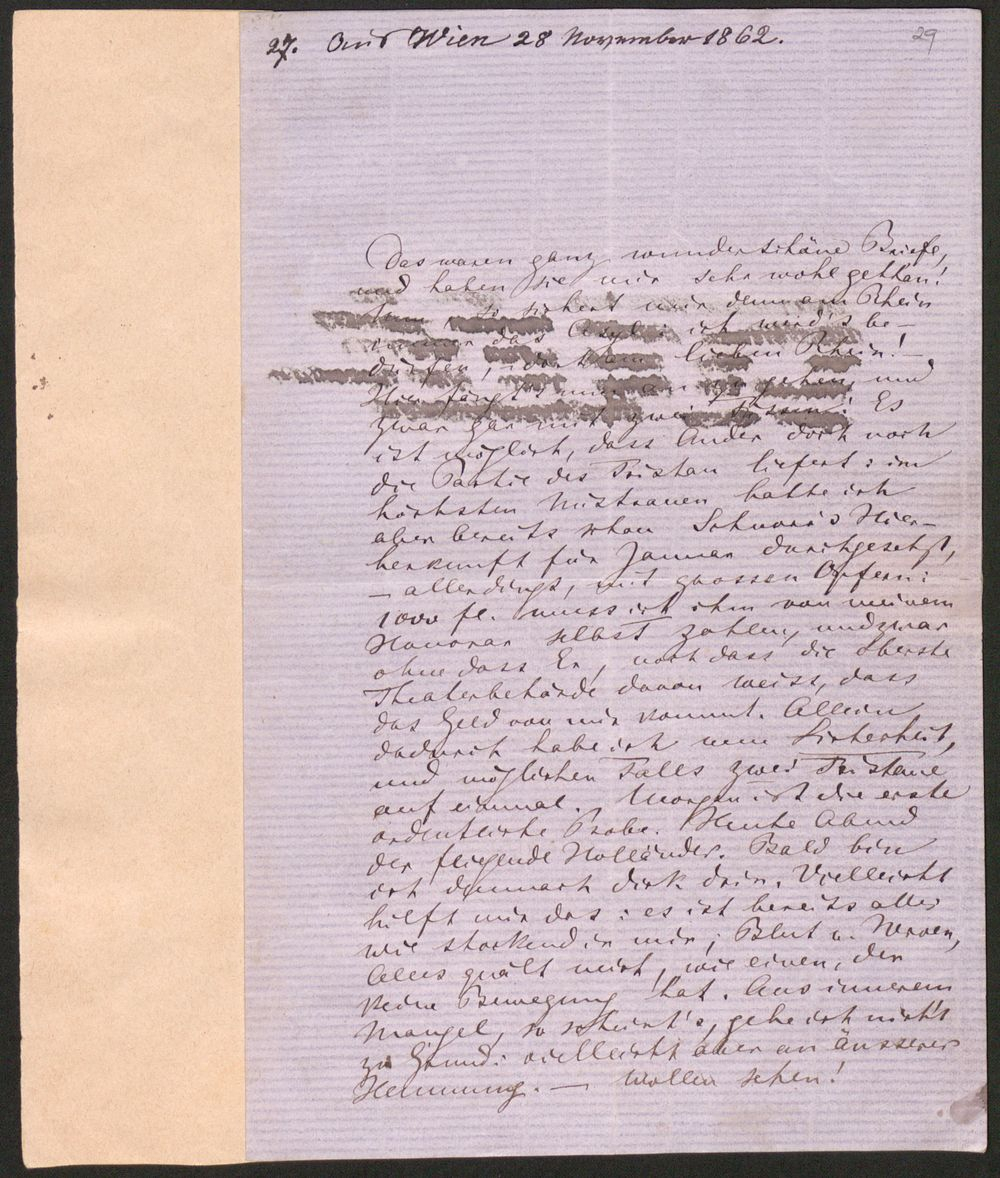 27. Aus Wien 28 November 1862.
29
Das waren ganz wunderschöne Briefe,
und haben sie mir sehr wohl gethan!
Nun, so sichert mir denn am Rhein
immer das Asyl: ich werd's be-
dürfen, dort am lieben Rhein! –
Hier fängt's nun an zu gehen, und
zwar gar mit zwei Füssen! Es
ist möglich, dass Ander doch noch
die Partie des Tristan liefert: im
höchsten Mistrauen hatte ich
aber bereits schon Schnorr's Hier-
herkunft für Januar durchgesetzt,
– allerdings, mit grossen Opfern:
1000 fl. muss ich ihm von meinem
Honorar selbst zahlen, und zwar
ohne dass Er, noch dass die Oberste
Theaterbehörde davon weiss, dass
das Geld von mir kommt. Allein
dadurch habe ich nun Sicherheit,
und möglichen Falls zwei Tristane
auf einmal. Morgen ist die erste
ordentliche Probe. Heute Abend
der fliegende Holländer. Bald bin
ich demnach dick drin. Vielleicht
hilft mir das: es ist bereits alles
wie stockend in mir; Blut u. Nerven,
Alles quält mich, wie einen, der
keine Bewegung hat. Aus innerem
Mangel, so scheint's, gehe ich nicht
zu Grund: vielleicht aber an äusserer
Hemmung. – Wollen sehen!